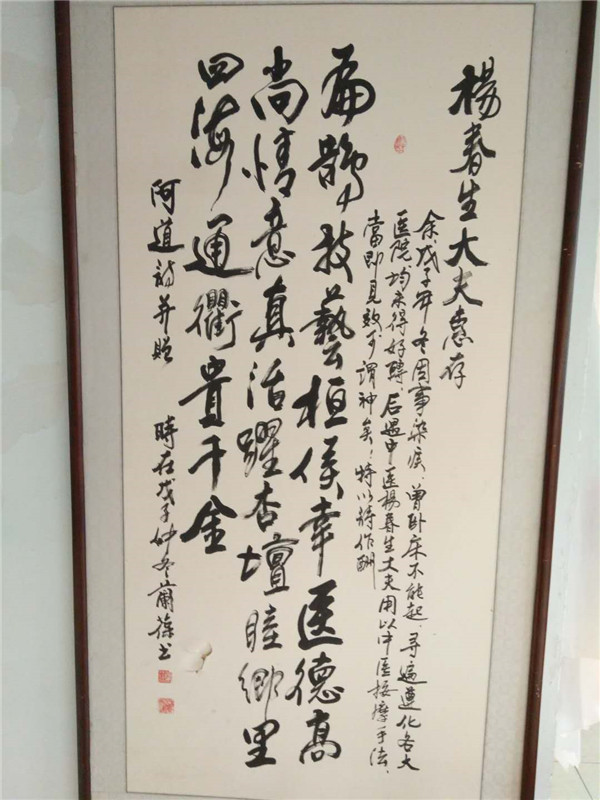 楊春生大夫惠存
余戊子年冬因事染疾，曾卧床不能起，尋遍遵化各大
医院，均未得好轉，后遇中医楊春生大夫用以中医按摩手法，
當即見效可謂神矣！特以詩作酬
扁鵲技藝桓侯幸医德高
尚情意真活躍杏壇睦鄉里
四海通衢貴千金
阿道詩并贈 時在戊子仲冬蘭葆书